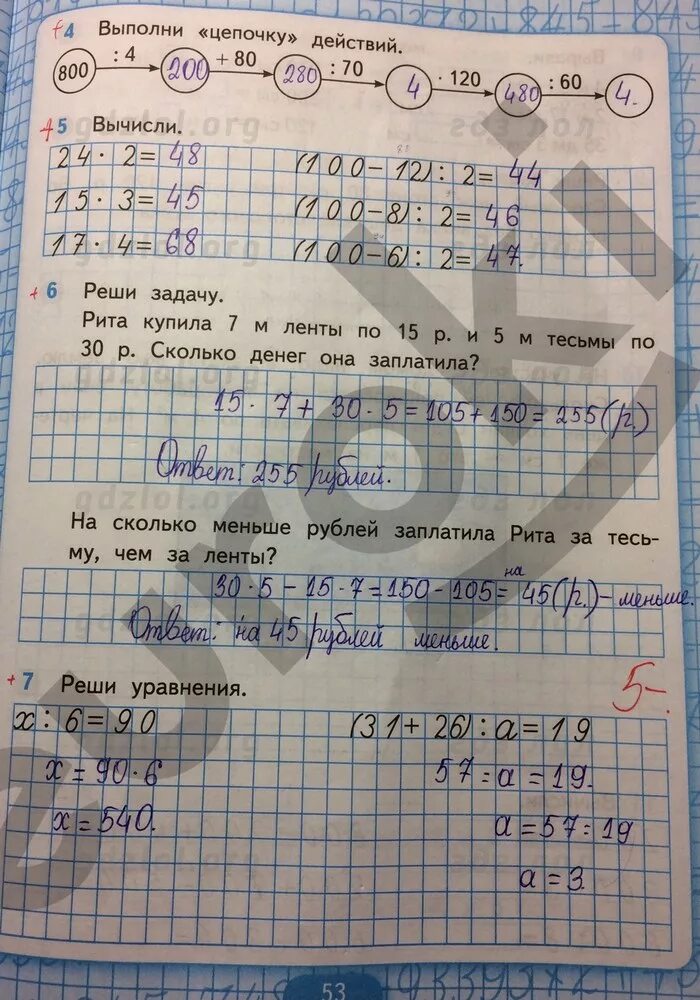 4 Выполни «цепочку» действий.
800 : 4 200 + 80 280 : 70 4 · 120 480 : 60 4.
5 Вычисли.
24 · 2 = 48 (100 – 12) : 2 = 44
15 · 3 = 45 (100 – 8) : 2 = 46
17 · 4 = 68 (100 – 6) : 2 = 47.
+ 6 Реши задачу.
Рита купила 7 м ленты по 15 р. и 5 м тесьмы по
30 р. Сколько денег она заплатила?
15 · 7 + 30 · 5 = 105 + 150 = 255 (р.)
Ответ: 255 рублей.
На сколько меньше рублей заплатила Рита за тесь-
му, чем за ленты?
30 · 5 – 15 · 7 = 150 – 105 = на 45 (р.) – меньше.
Ответ: на 45 рублей меньше.
+ 7 Реши уравнения.
5-.
x : 6 = 90 (31 + 26) : a = 19
x = 90 · 6 57 : a = 19.
x = 540. a = 57 : 19
a = 3.
53
euroki
gdzlol.org